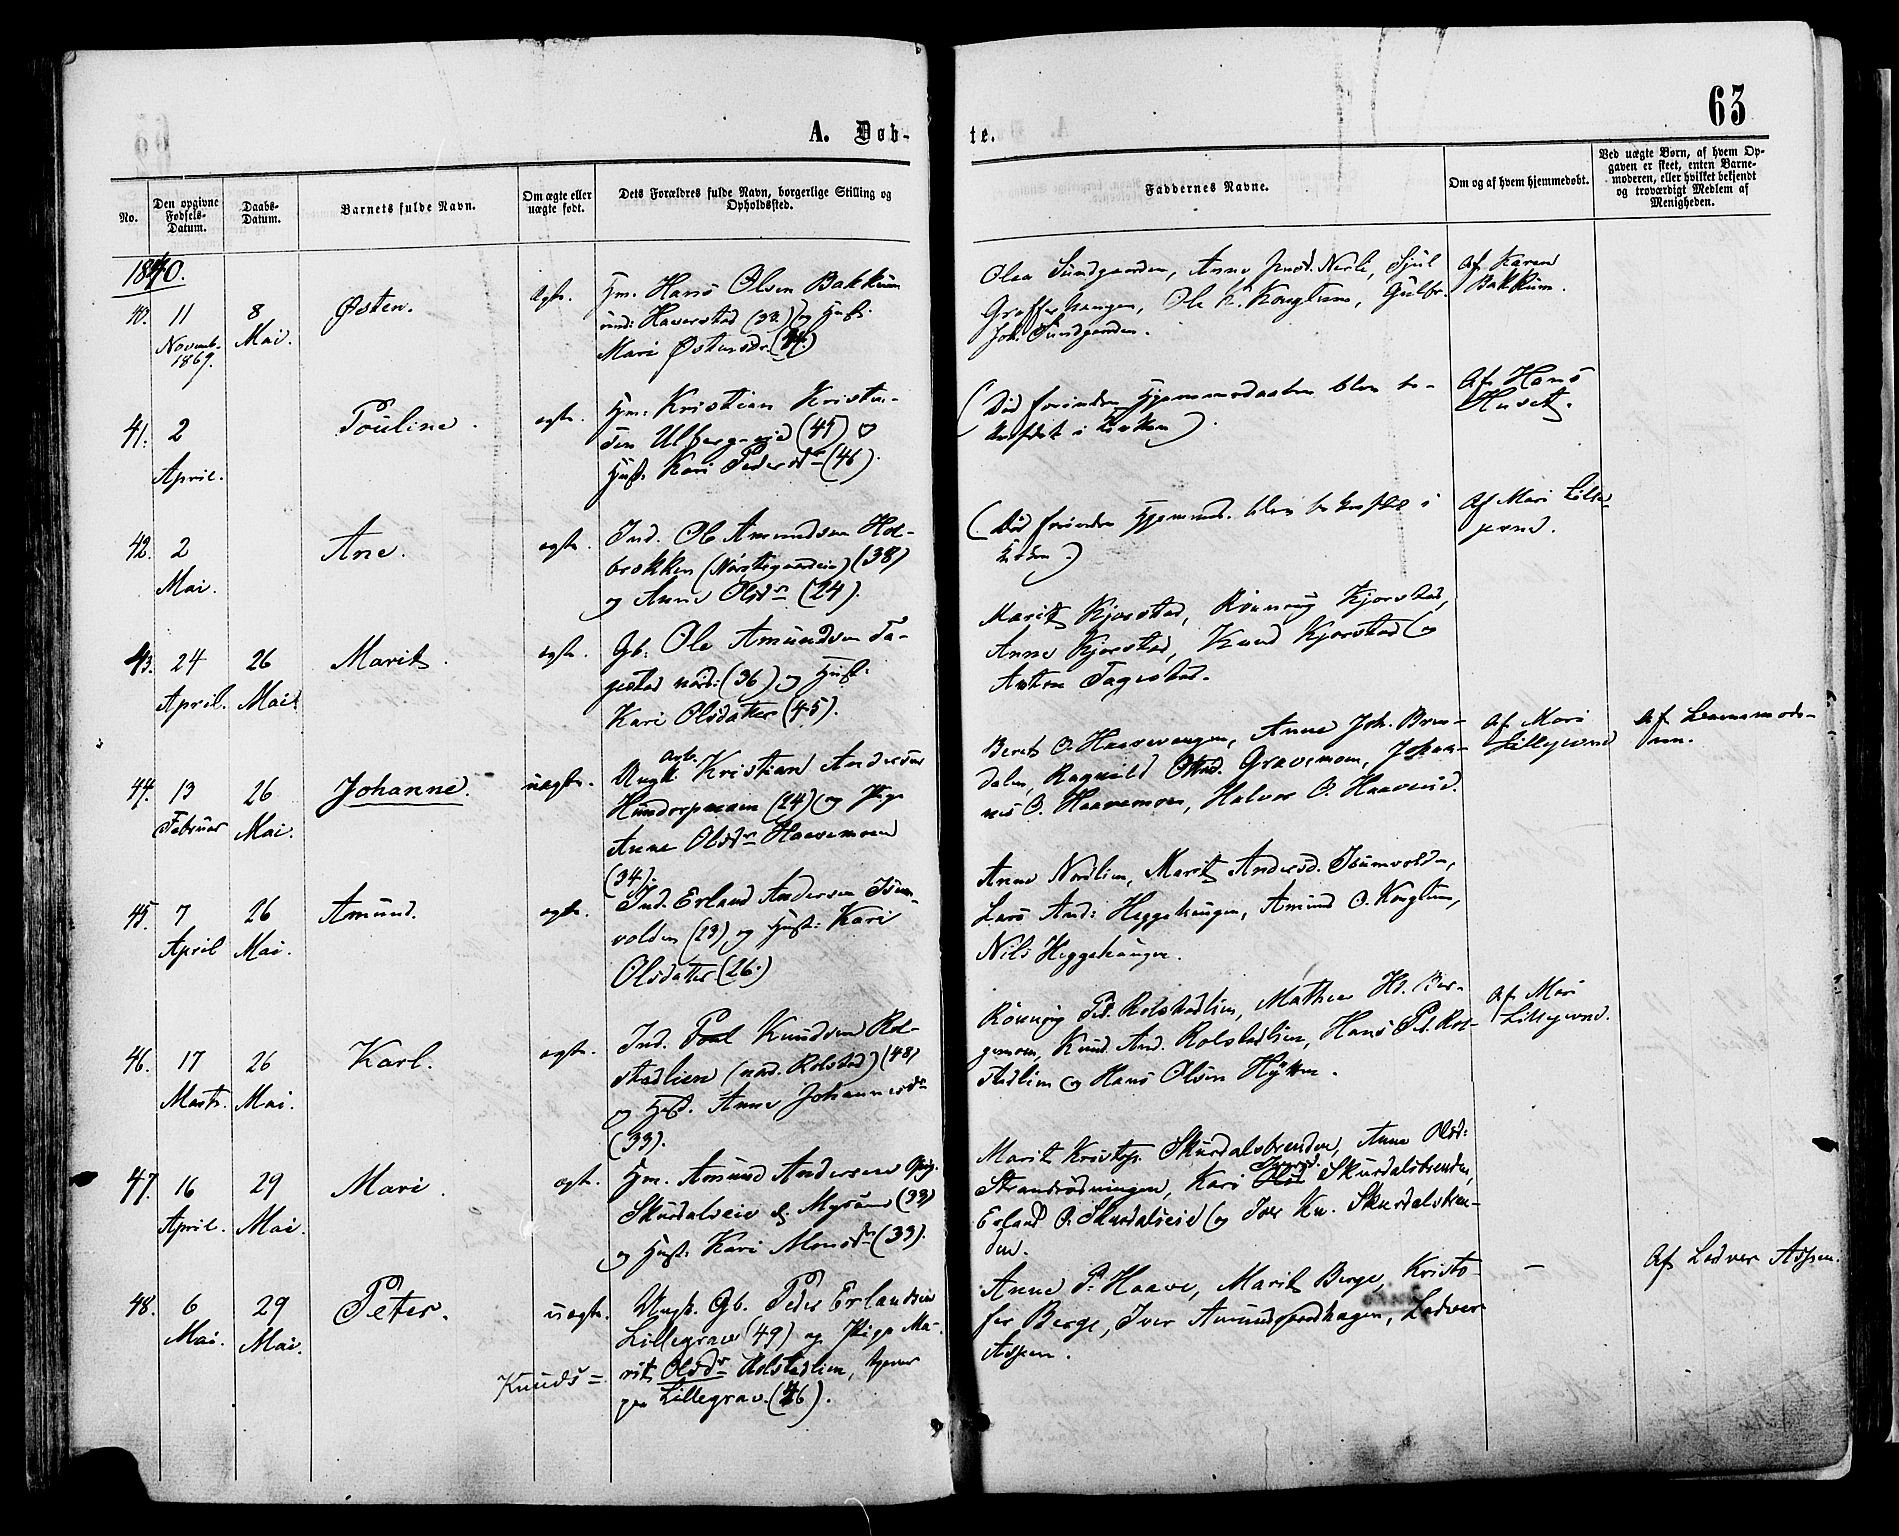 63
A. Døb-
te.
No.
Den opgivne Fødsels-Datum.
Daabs-Datum.
Barnets fulde Navn.
Om ægte eller uægte født.
Dets Forældres fulde Navn, borgerlige Stilling og Opholdssted.
Faddernes Navne.
Om og af hvem hjemmedøbt.
Ved uægte Børn, af hvem Opgaven er skeet, enten Barnemoderen, eller hvilket bekjendt og troværdigt Medlem af Menigheden.
1870.
40. 11 Novemb. 1869.
8 Mai.
Østen.
ægte.
Hm. Hans Olsen Bakkum
und: Haverstad (33.) og Hust:
Mari Østensdr. (34.)
Olea Sundgaarden, Anne Nerle, Sjul
Graffer haugen, Ole K. Konglum, Gulbr.
Joh. Sundgaarden.
Af Karen
Bakkum.
41. 2 April.
Pouline.
ægte.
Hm. Kristian Kristen-
sen Ulberg-eie (45) &
Hust. Kari Pedersdr (46).
(Død forinden Hjemmedaaben blev be-
kræftet i Kirken).
Af Hans
Huset.
42. 2 Mai.
Ane.
ægte.
Ind. Ole Amundsen Hol-
brækken (Nørstegaardeie) (38)
og Anne Olsdr (24).
(Død forinden Hjemmed. blev bekræftet i
Kirken.)
Af Mari Lille-
gevnd.
43. 24 April.
26 Mai.
Marit.
ægte.
Gb. Ole Amundsen Ta-
gestad nord: (36) og Hust:
Kari Olsdatter (45).
Marit Kjorstad, Rønnoug Kjorstad,
Anne Kjorstad, Knud Kjorstad og
Anton Tagestad.
44. 13 Februar
26 Mai.
Johanne.
uægte.
Ungk. Kristian Andersen
Hundorpmoen (24) og Pige
Anne Olsdr Haavemoen
(34).
Berit O. Haavevangen, Anne Joh. Brun-
dalen, Ragnild Gravemoen, Johan-
nes O. Haavemoen, Halvor O. Haaveeid.
Af Mari
Lillegevnd
Af Barnemode-
ren.
45. 7 April
26 Mai.
Amund.
ægte.
Ind. Erland Andersen Isum-
volden (29) og Hust: Kari
Olsdatter (26.)
Anne Nordlien, Marit Andersd. Isumvolden,
Lars And: Heggehaugen, Amund O. Konglum,
Nils Heggehaugen.
46. 17 Marts.
26 Mai.
Karl.
ægte.
Ind. Poul Knudsen Rol-
stadlien (nord. Rolstad) (48)
og Hust. Anne Johannesdr
(33).
Rønnoug Ped. Rolstadlien, Mathea Hs. Ber-
gemoen, Knud And. Rolstadlien, Hans Ped. Rol-
stadlien og Hans Olsen Hytten.
Af Mari
Lillegevnd.
47. 16 April.
29 Mai.
Mari.
ægte.
Hm. Amund Andersen
Skurdalseie (39)
og Hust: Kari Monsdr (33).
Marit Kristop. Skurdalsbrenden, Anne Olsd:
Strandrødningen, Kari Olsd. Skurdalsbrenden,
Erland O. Skurdalseie og Iver Kn. Skurdalsbren-
den.
48. 6 Mai.
29 Mai.
Peter.
uægte.
Ungk. Gb. Peder Erlandsen
Lillegrav (49) og Pige Ma-
rit Olsdr Rolstadlien, tjener
paa Lillegrav (26).
Knuds =
Anne P. Haave, Marit Berge, Kristo-
fer Berge, Iver Amundgaardhagen, Ledver
Aspen.
—
Af Ledver Aspen.